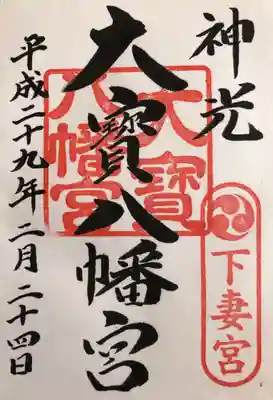 神光
大寳八幡宮
大寳
八幡宮
下妻宮
平成二十九年二月二十四日